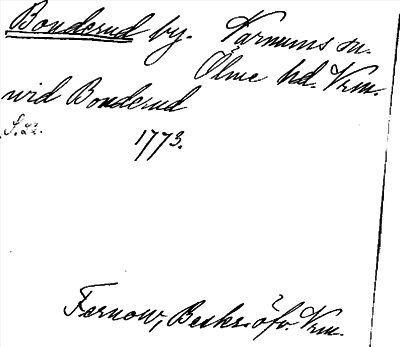 Bonderud by. Varnums sn.
Ölme hd. Vrm.
vid Bonderud
S. 22. 1773.
Fernow, Beskr. öfv. Vrm.